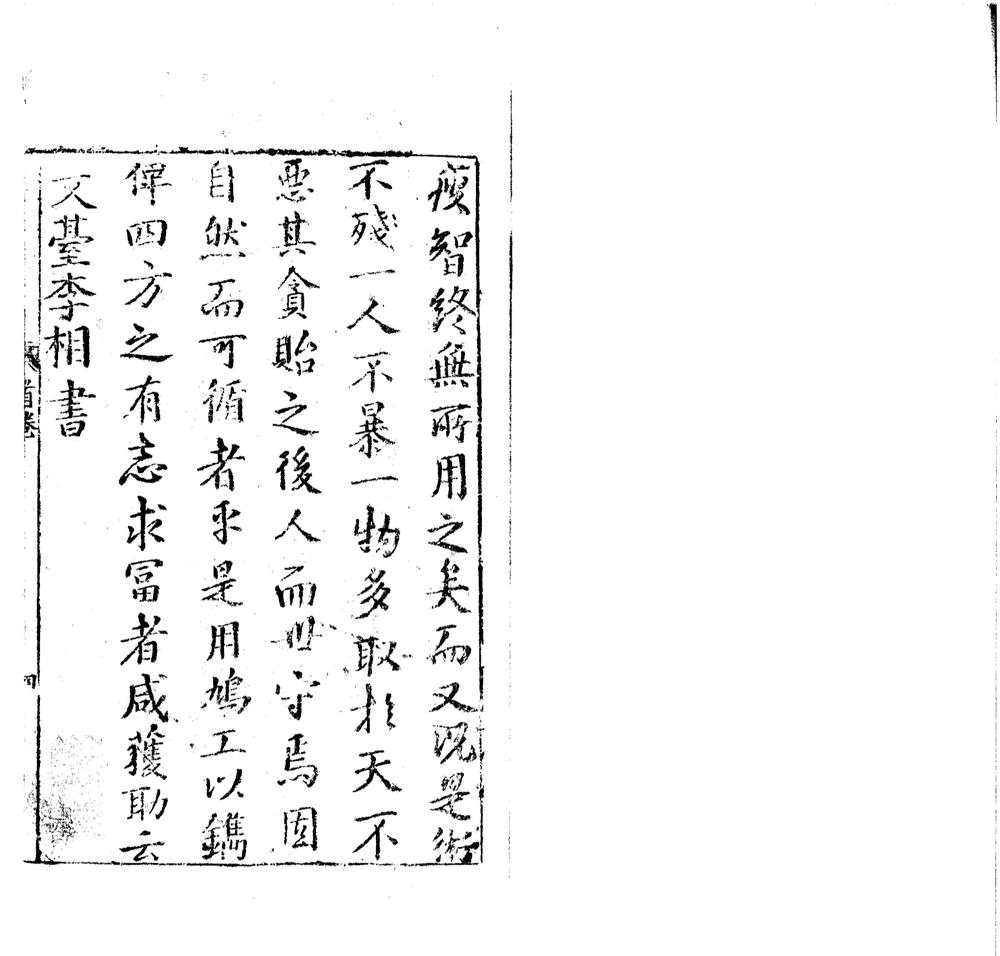 瘦智終無所用之矣而又況是術
不殘一人不暴一物多取於天不
惡其貪貽之後人而世守焉固
自然而可循者乎是用鳩工以鐫
俾四方之有志求富者咸獲助云
文臺李相書
首卷
四